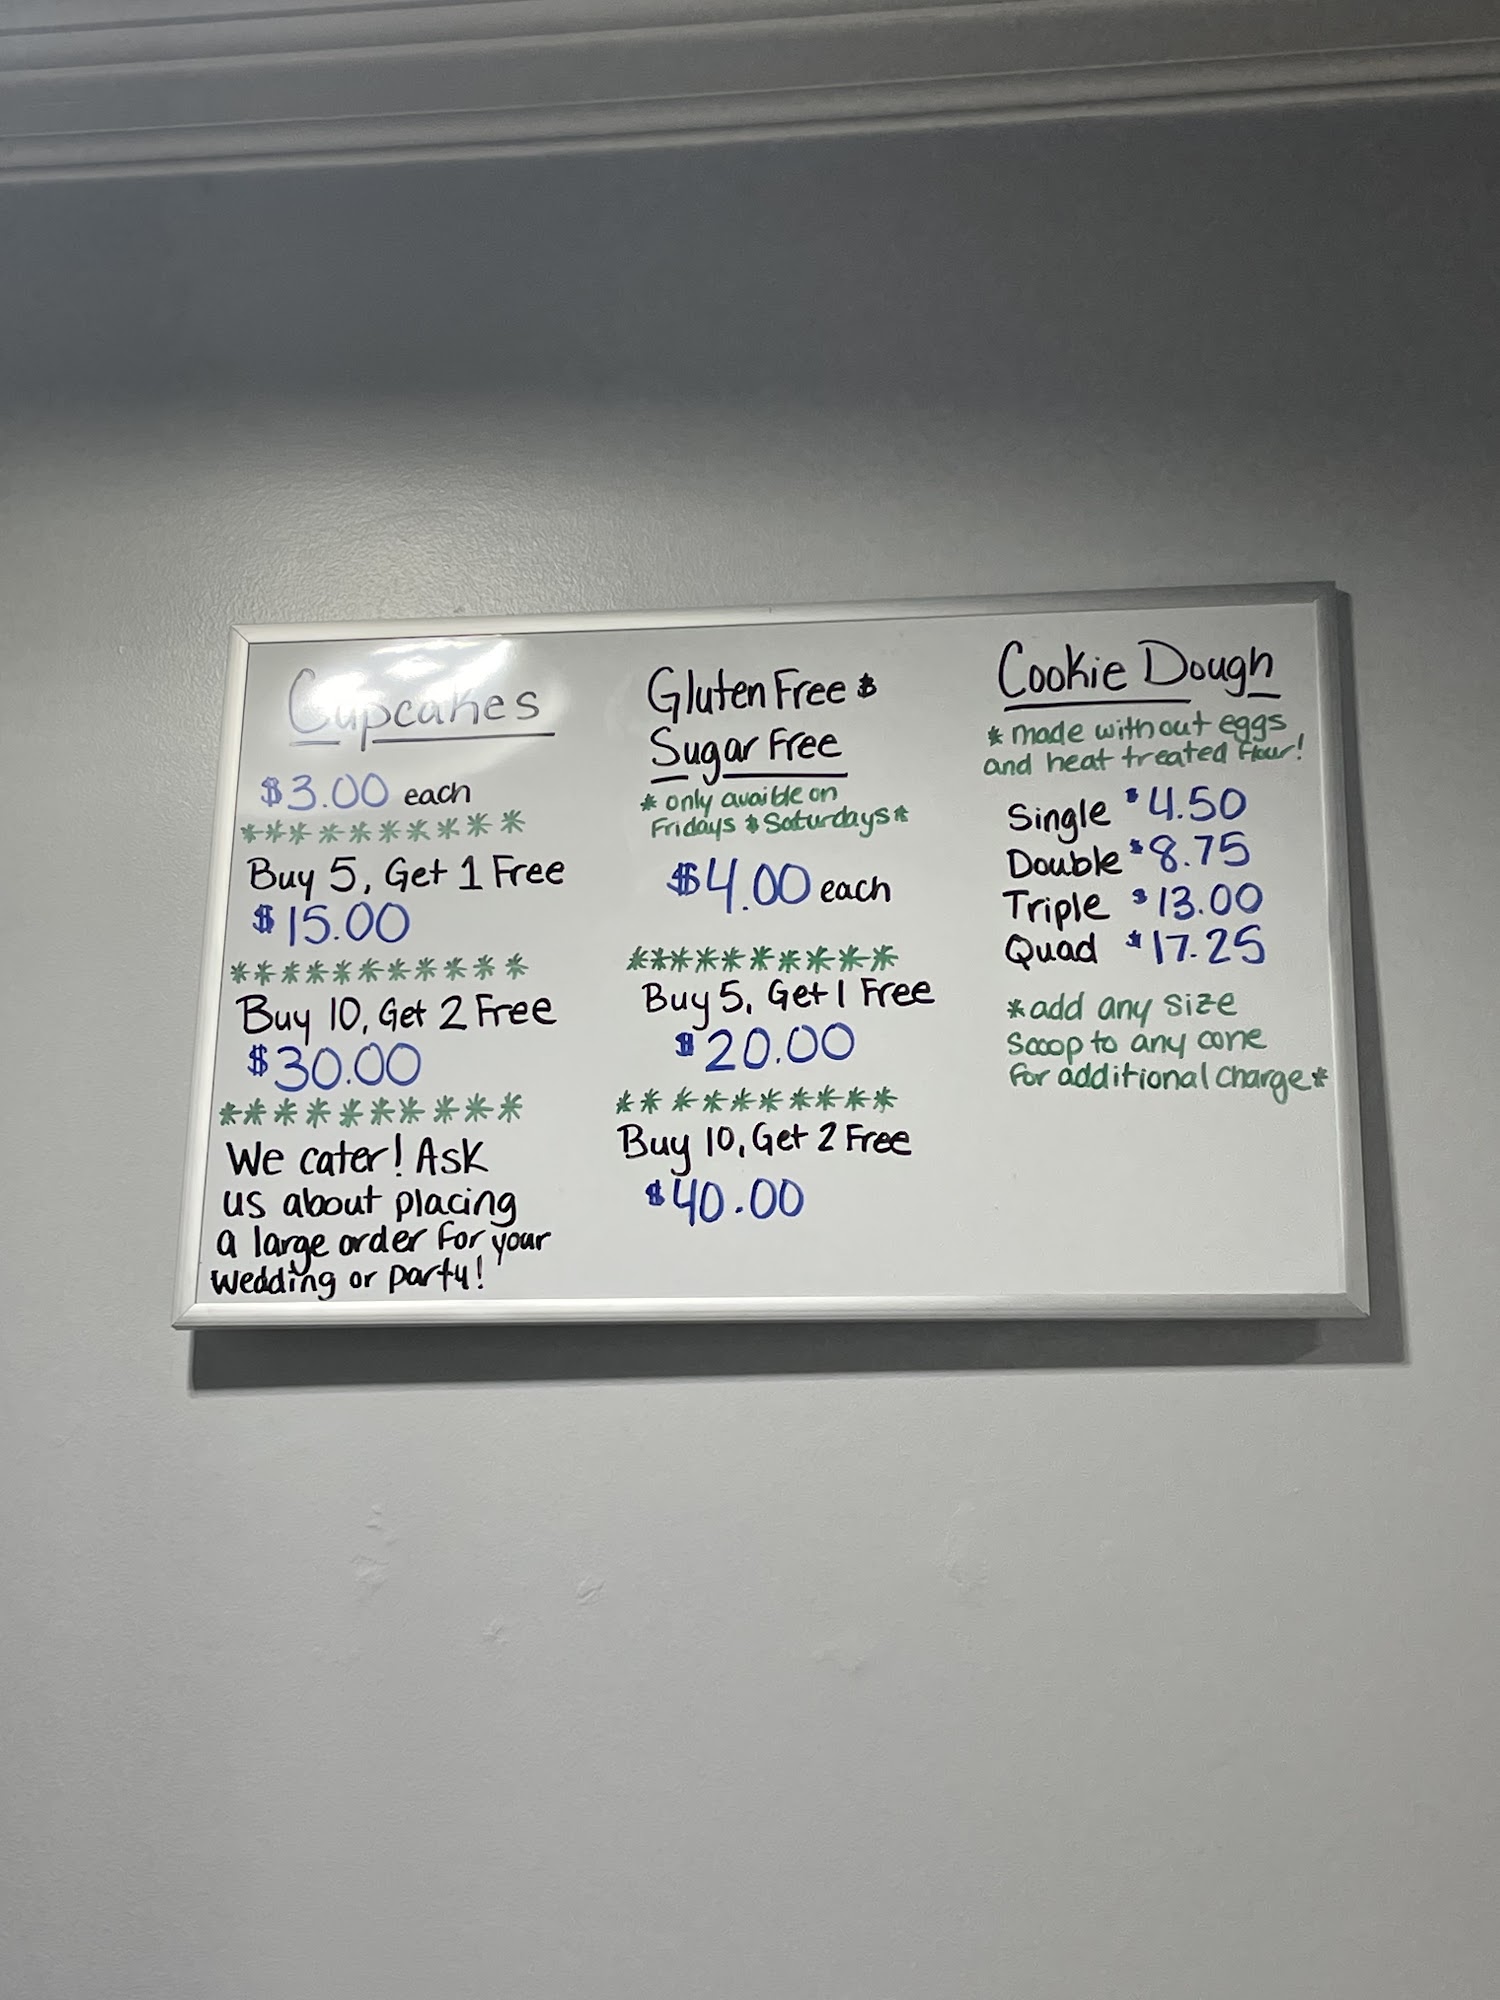 Cupcakes
$3.00 each
* * * * * * * * * *
Buy 5, Get 1 Free
$15.00
* * * * * * * * * * *
Buy 10, Get 2 Free
$30.00
* * * * * * * * * *
We cater! Ask
us about placing
a large order for your
wedding or party!
Gluten Free &
Sugar Free
* only avaible on
Fridays & Saturdays *
$4.00 each
* * * * * * * * * *
Buy 5, Get 1 Free
$20.00
* * * * * * * * * *
Buy 10, Get 2 Free
$40.00
Cookie Dough
* made without eggs
and heat treated flour!
Single $4.50
Double $8.75
Triple $13.00
Quad $17.25
*add any size
scoop to any cone
for additional charge*